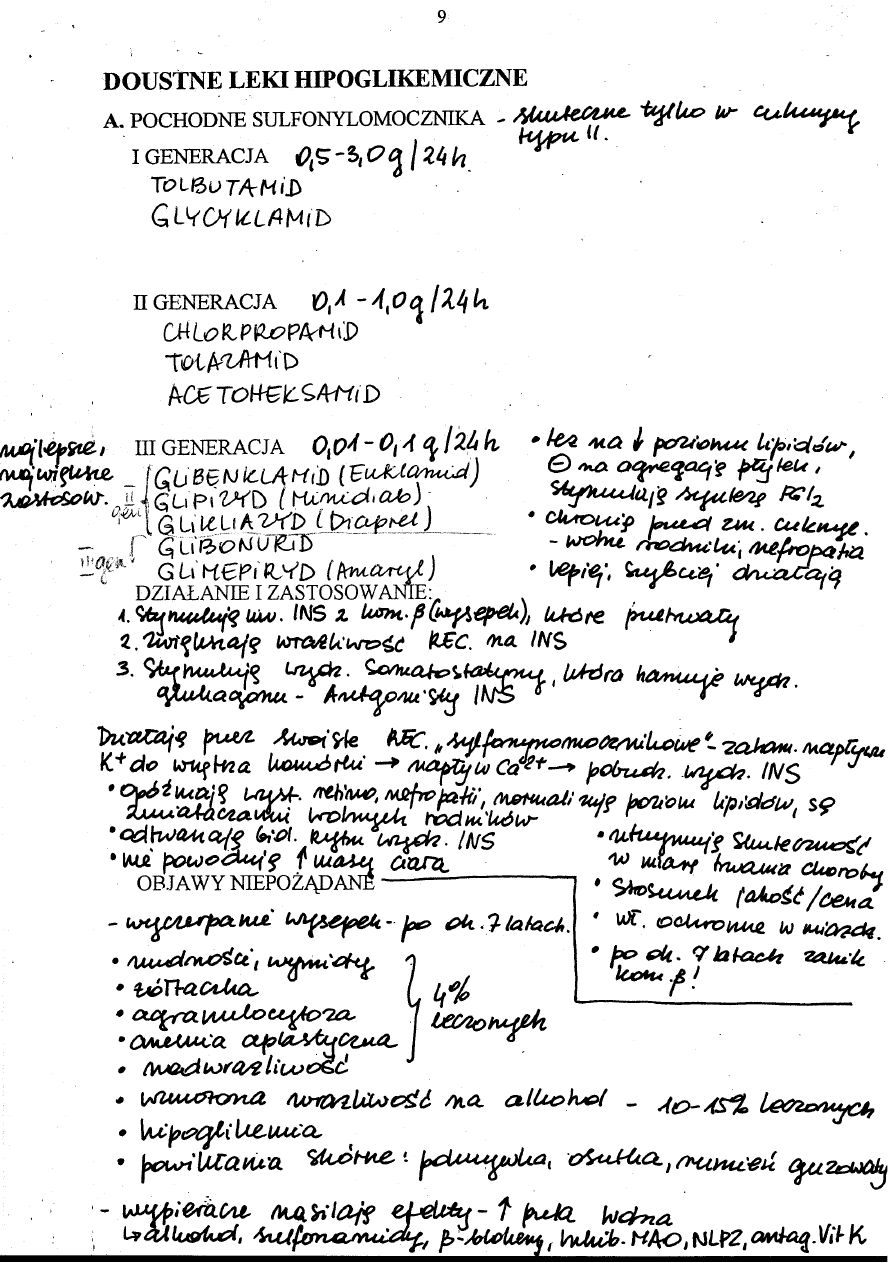 9
DOUSTNE LEKI HIPOGLIKEMICZNE
A. POCHODNE SULFONYLOMOCZNIKA - skuteczne tylko w cukrzycy
typu II.
I GENERACJA 0,5-3,0g/24h
TOLBUTAMID
GLYCYKLAMID
II GENERACJA 0,1-1,0g/24h
CHLORPROPAMID
TOLAZAMID
ACETOHEKSAMID
najlepsze,
największe
zastosow.
III GENERACJA 0,01-0,1g/24h
GLIBENKLAMID (Euklamid)
II gen GLIPIZYD (Minidiab)
GLIKLIAZYD (Diaprel)
GLIBONURID
III gen GLIMEPIRYD (Amaryl)
• też na ↓ poziomu lipidów,
⊖ na agregację płytek,
stymulują syntezę PGI2
• chronię przed zm. cukrzyc.
- wolne rodniki, nefropatia
• lepiej, szybciej działają
DZIAŁANIE I ZASTOSOWANIE:
1. Stymulują uw. INS z kom. β (wysepek), które przetrwały
2. Zwiększają wrażliwość REC. na INS
3. Stymulują wydz. Somatostatyny, która hamuje wydz.
glukagonu - Antgonisty INS
Działają przez swoiste REC. „sylfonynomocznikowe" - zaham. napływu
K+ do wnętrza komórki → napływ Ca2+ → pobudz. wydz. INS
• opóźniają wyst. retino, nefropatii, normalizują poziom lipidów, są
zmiataczami wolnych rodników
• odtwarzają biol. rytm wydz. INS
• nie powodują ↑ masy ciała
• utrzymują skuteczność
w miarę trwania choroby
• Stosunek jakość/cena
• wł. ochronne w miażdż.
• po ok. 7 latach zanik
kom. β!
OBJAWY NIEPOŻĄDANE
- wyczerpanie wysepek - po ok. 7 latach.
• nudności, wymioty
• żółtaczka
• agranulocytoza
• anemia aplastyczna
• nadwrażliwość
4%
leczonych
• wzmożona wrażliwość na alkohol - 10-15% leczonych
• hipoglikemia
• powikłania skórne: pokrzywka, osutka, rumień guzowaty
- wypieracze nasilają efekty - ↑ pula wolna
↳ alkohol, sulfonamidy, β-blokery, inhib. MAO, NLPZ, antag. Vit K